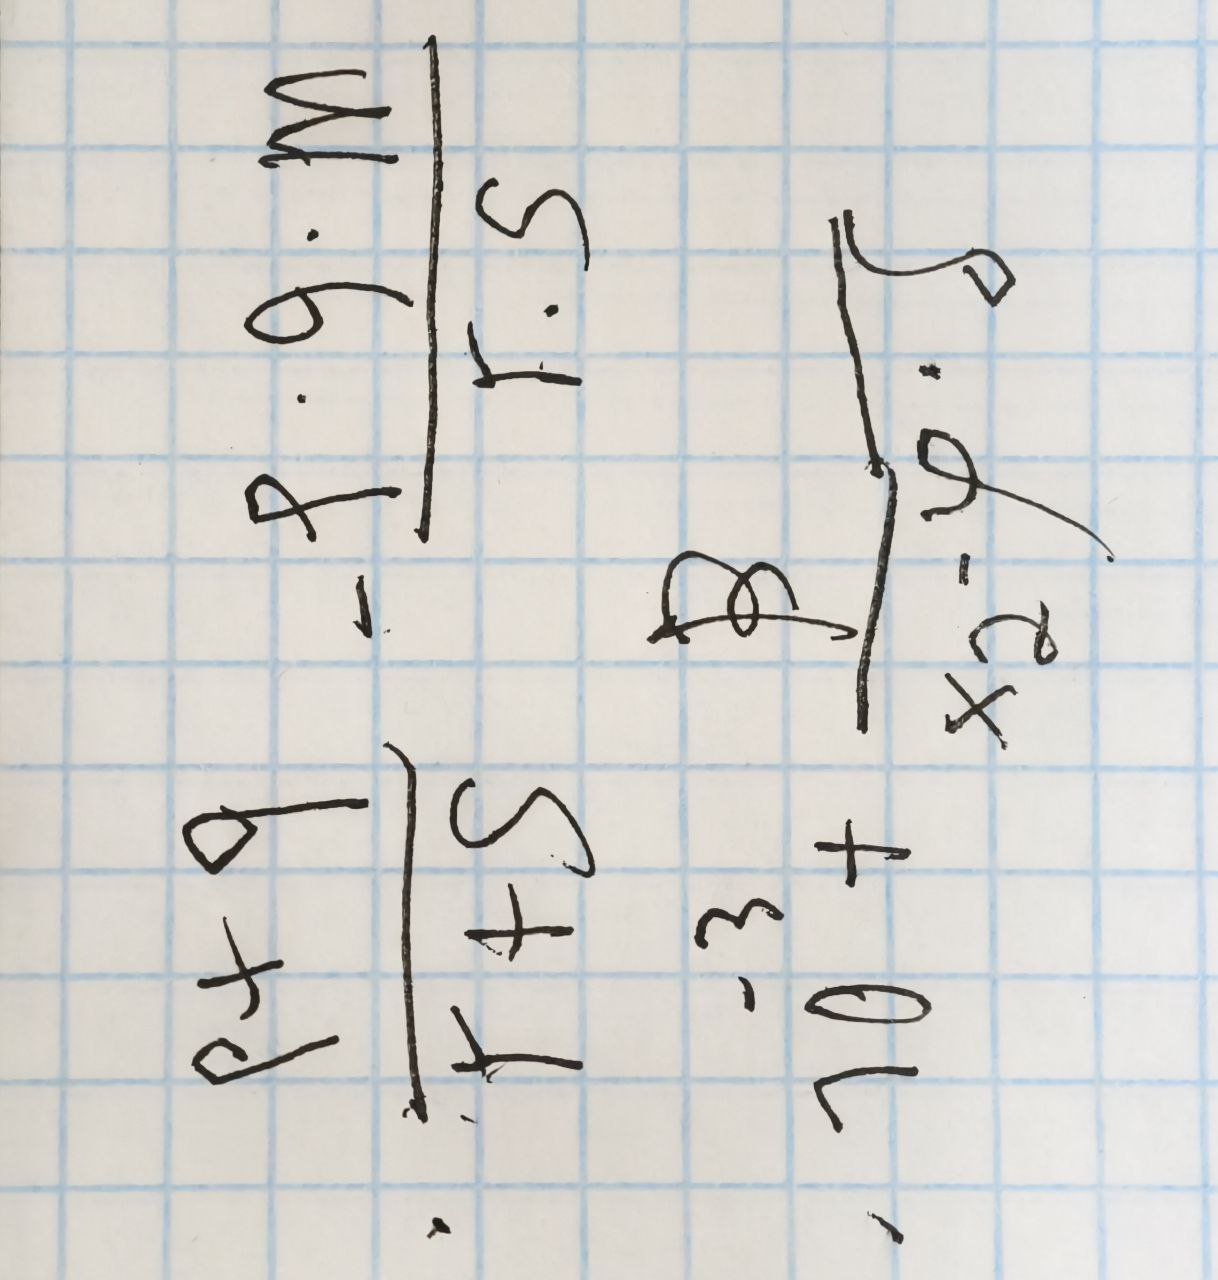 p+q / r+s - p·q·m / r·s
10^-3 + B / x2 - y ·